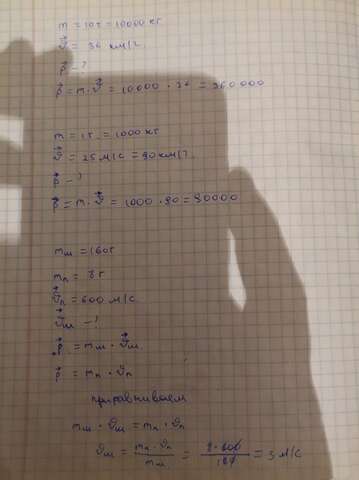 m = 10т = 10000 кг
v⃗ = 36 км/ч
p⃗ - ?
p⃗ = m · v⃗ = 10000 · 36 = 360 000
m = 1т = 1000 кг
v⃗ = 25 м/с = 90 км/ч
p⃗ - ?
p⃗ = m · v⃗ = 1000 · 90 = 90000
mш = 160г
mп = 8 г
v⃗п = 600 м/с
v⃗ш - ?
p⃗ = mш · v⃗ш
p⃗ = mп · vп
приравниваем
mш · vш = mп · vп
vш = mп · vп / mш = 8 · 600 / 160 = 3 м/с